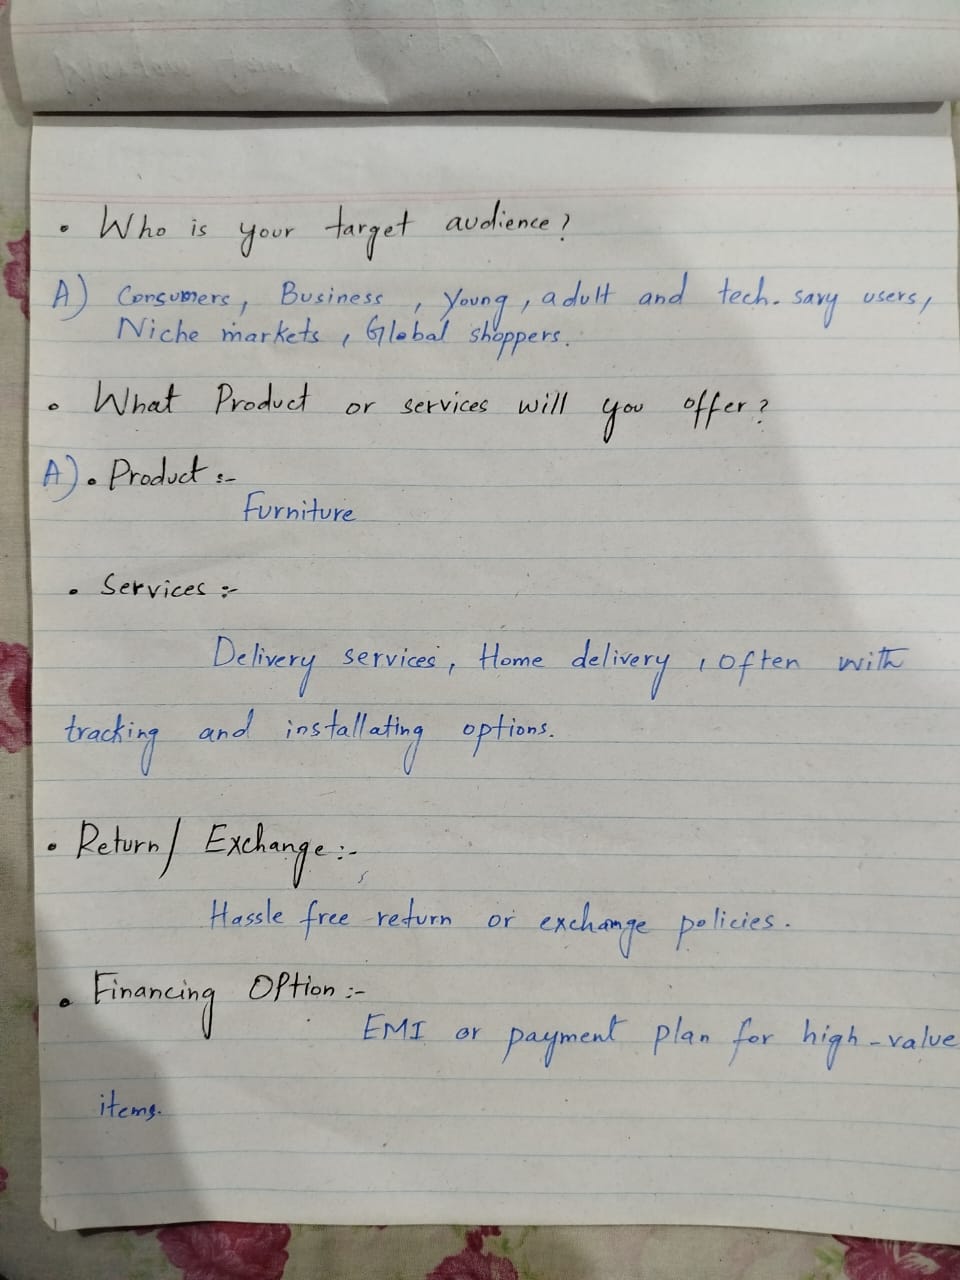 • Who is your target audience?
A) Consumers, Business, Young, adult and tech. savy users,
Niche markets, Global shoppers.
• What Product or services will you offer?
A). Product :-
Furniture
• Services :-
Delivery services, Home delivery, often with
tracking and installating options.
• Return/ Exchange :-
Hassle free return or exchange policies.
• Financing Option :-
EMI or payment plan for high-value
items.